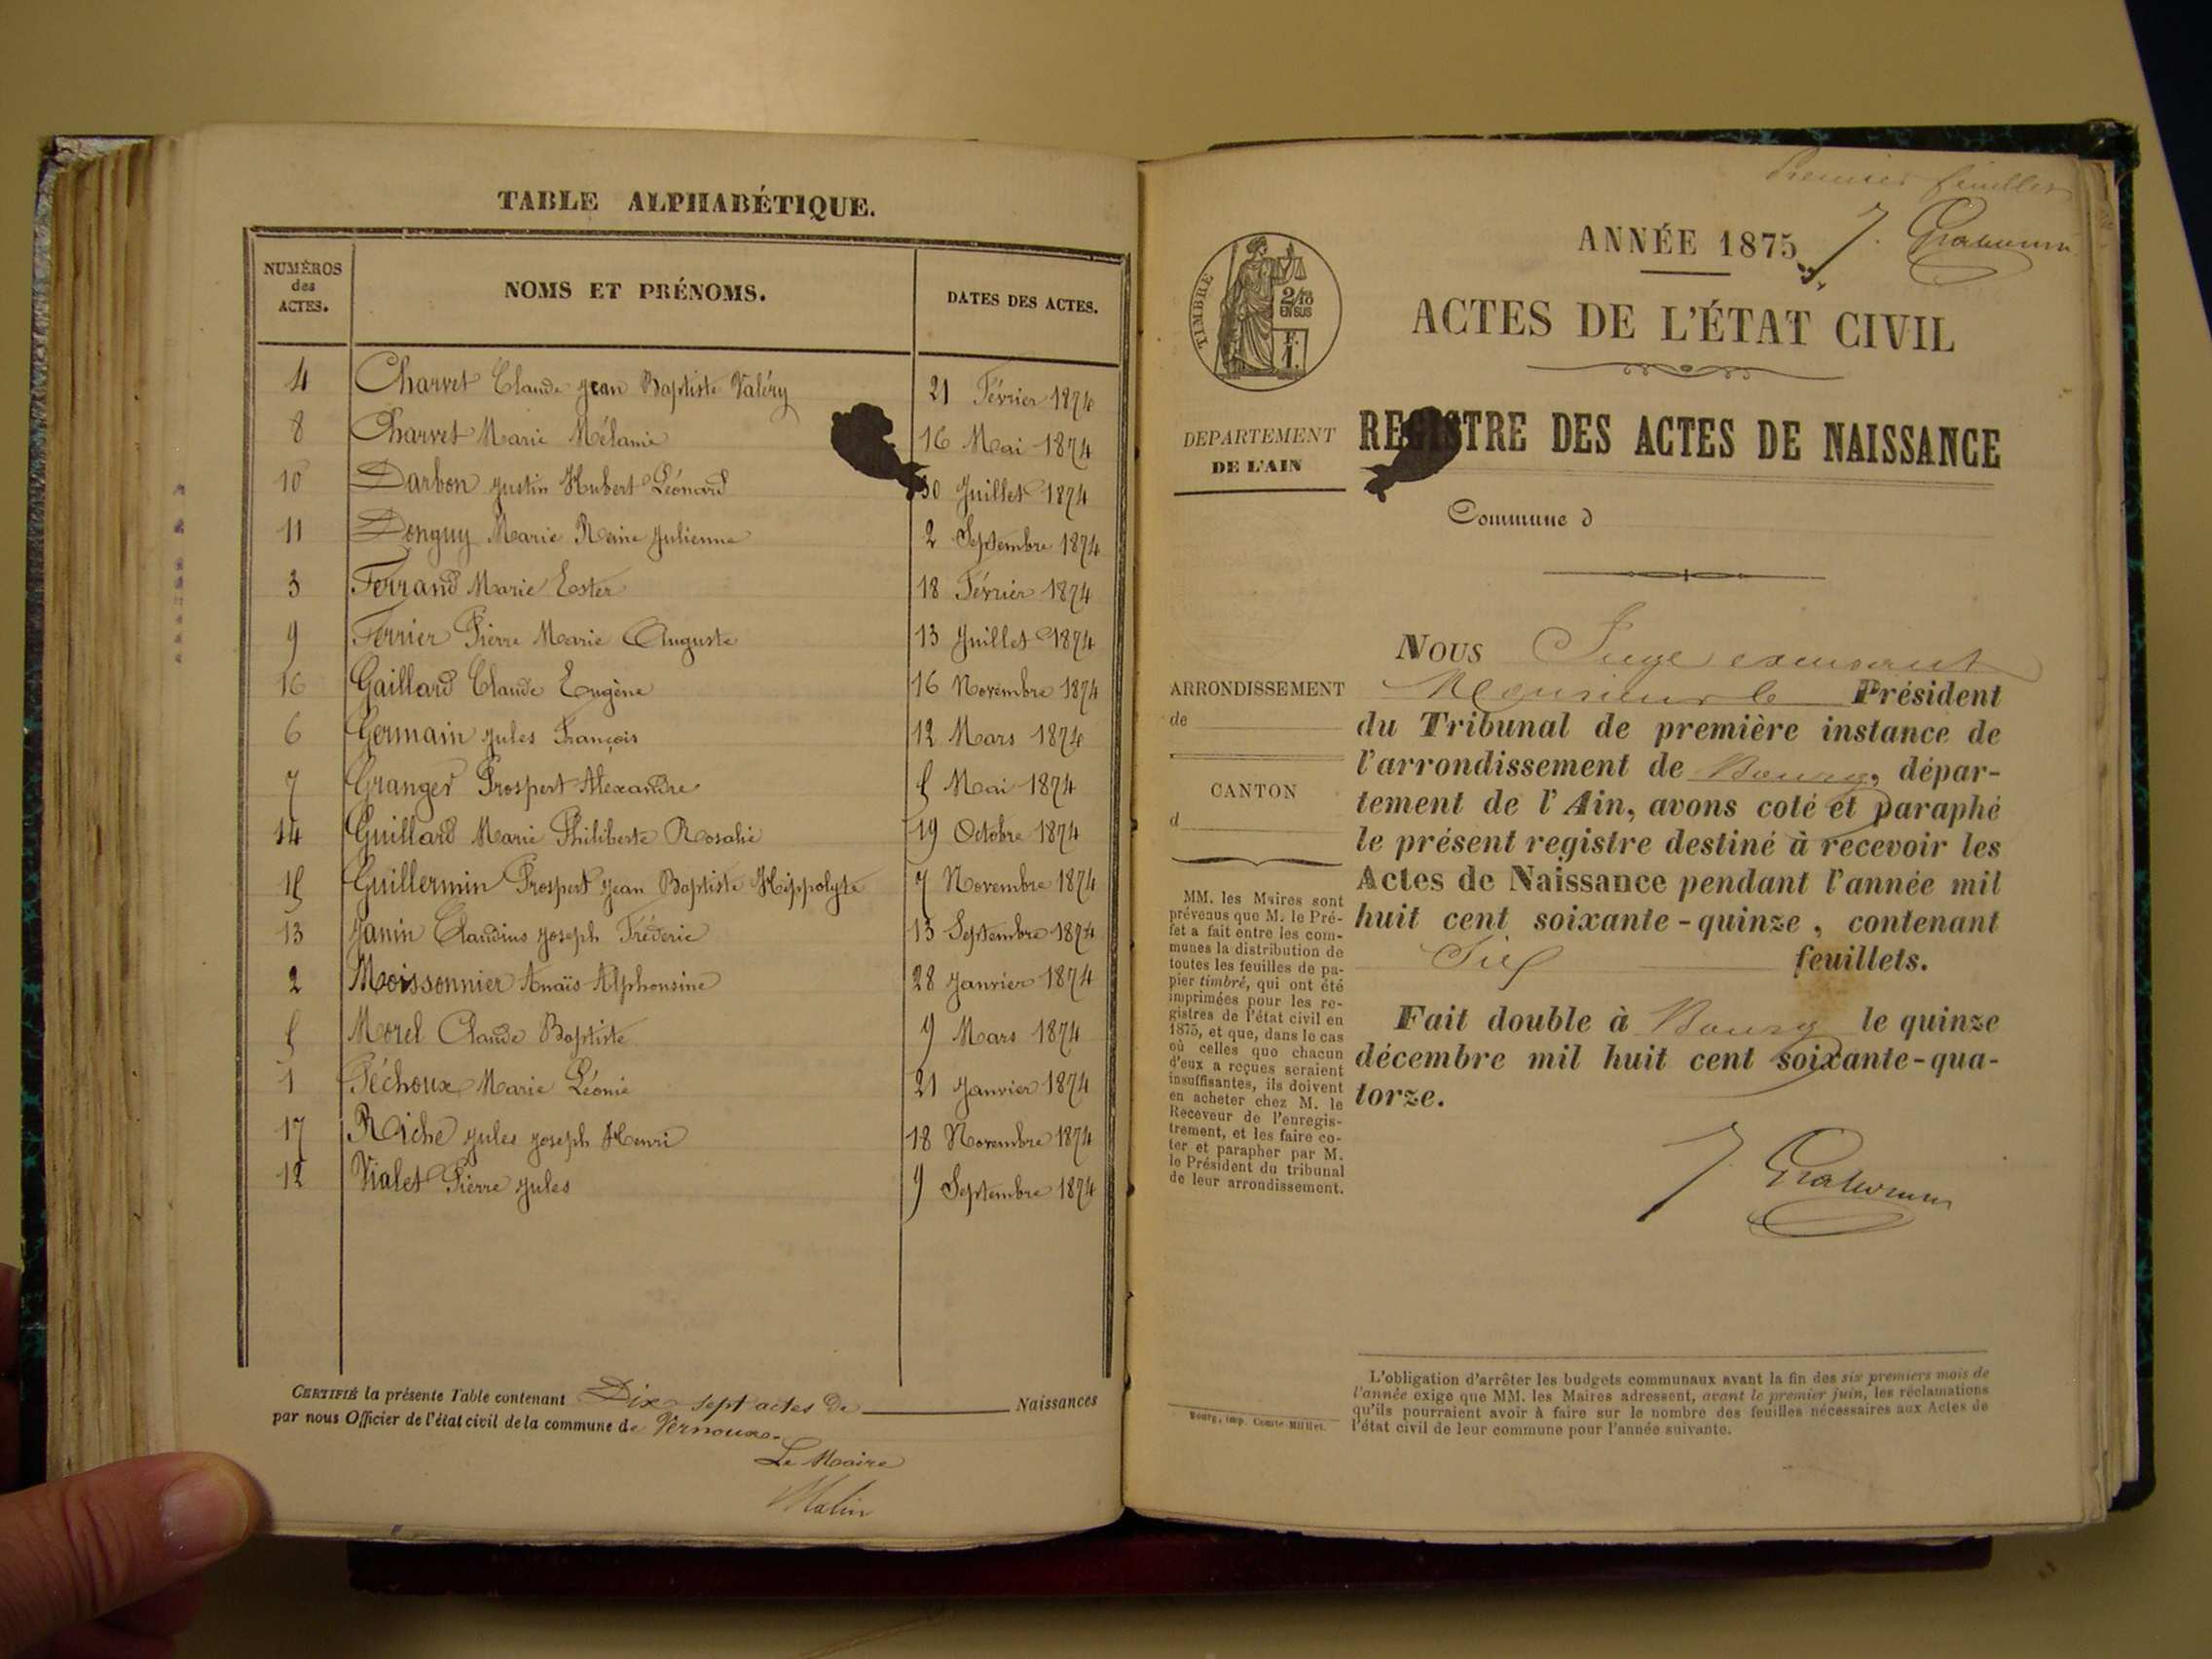 TABLE ALPHABÉTIQUE.
NUMÉROS des ACTES.
NOMS ET PRÉNOMS.
DATES DES ACTES.
4 Charvet Claude Jean Baptiste Valéry 21 Février 1874
8 Charvet Marie Mélanie 16 Mai 1874
10 Darbon Justin Hubert Léonard 30 Juillet 1874
11 Donguy Marie Reine Julienne 2 Septembre 1874
3 Ferrand Marie Ester 18 Février 1874
9 Ferrier Pierre Marie Auguste 13 Juillet 1874
16 Gaillard Claude Eugène 16 Novembre 1874
6 Germain Jules François 12 Mars 1874
7 Granger Prospert Alexandre 5 Mai 1874
14 Guillard Marie Philiberte Rosalie 19 Octobre 1874
15 Guillermin Prospert Jean Baptiste Hippolyte 7 Novembre 1874
13 Janin Claudius Joseph Fréderic 13 Septembre 1874
2 Moissonnier Anaïs Alphonsine 28 Janvier 1874
5 Morel Claude Baptiste 9 Mars 1874
1 Péchoux Marie Léonie 21 Janvier 1874
17 Riche Jules Joseph Henri 18 Novembre 1874
12 Vialet Pierre Jules 9 Septembre 1874
CERTIFIÉ la présente Table contenant Dix sept actes de Naissances
par nous Officier de l'état civil de la commune de Vernoux.
Le Maire
Malin
Premier feuillet
ANNÉE 1875
ACTES DE L'ÉTAT CIVIL
TIMBRE
2/10
EN SUS
F.
1.
REGISTRE DES ACTES DE NAISSANCE
DEPARTEMENT
DE L'AIN
Commune d
ARRONDISSEMENT
de
CANTON
d
MM. les Maires sont
prévenus que M. le Pré-
fet a fait entre les com-
munes la distribution de
toutes les feuilles de pa-
pier timbré, qui ont été
imprimées pour les re-
gistres de l'état civil en
1875, et que, dans le cas
où celles que chacun
d'eux a reçues seraient
insuffisantes, ils doivent
en acheter chez M. le
Receveur de l'enregis-
trement, et les faire co-
ter et parapher par M.
le Président du tribunal
de leur arrondissement.
Bourg, imp. Comte-Milliet.
NOUS Juge
Monsieur le Président
du Tribunal de première instance de
l'arrondissement de Bourg, dépar-
tement de l'Ain, avons coté et paraphé
le présent registre destiné à recevoir les
Actes de Naissance pendant l'année mil
huit cent soixante-quinze, contenant
Six feuillets.
Fait double à Bourg le quinze
décembre mil huit cent soixante-qua-
torze.
L'obligation d'arrêter les budgets communaux avant la fin des six premiers mois de
l'année exige que MM. les Maires adressent, avant le premier juin, les réclamations
qu'ils pourraient avoir à faire sur le nombre des feuilles nécessaires aux Actes de
l'état civil de leur commune pour l'année suivante.